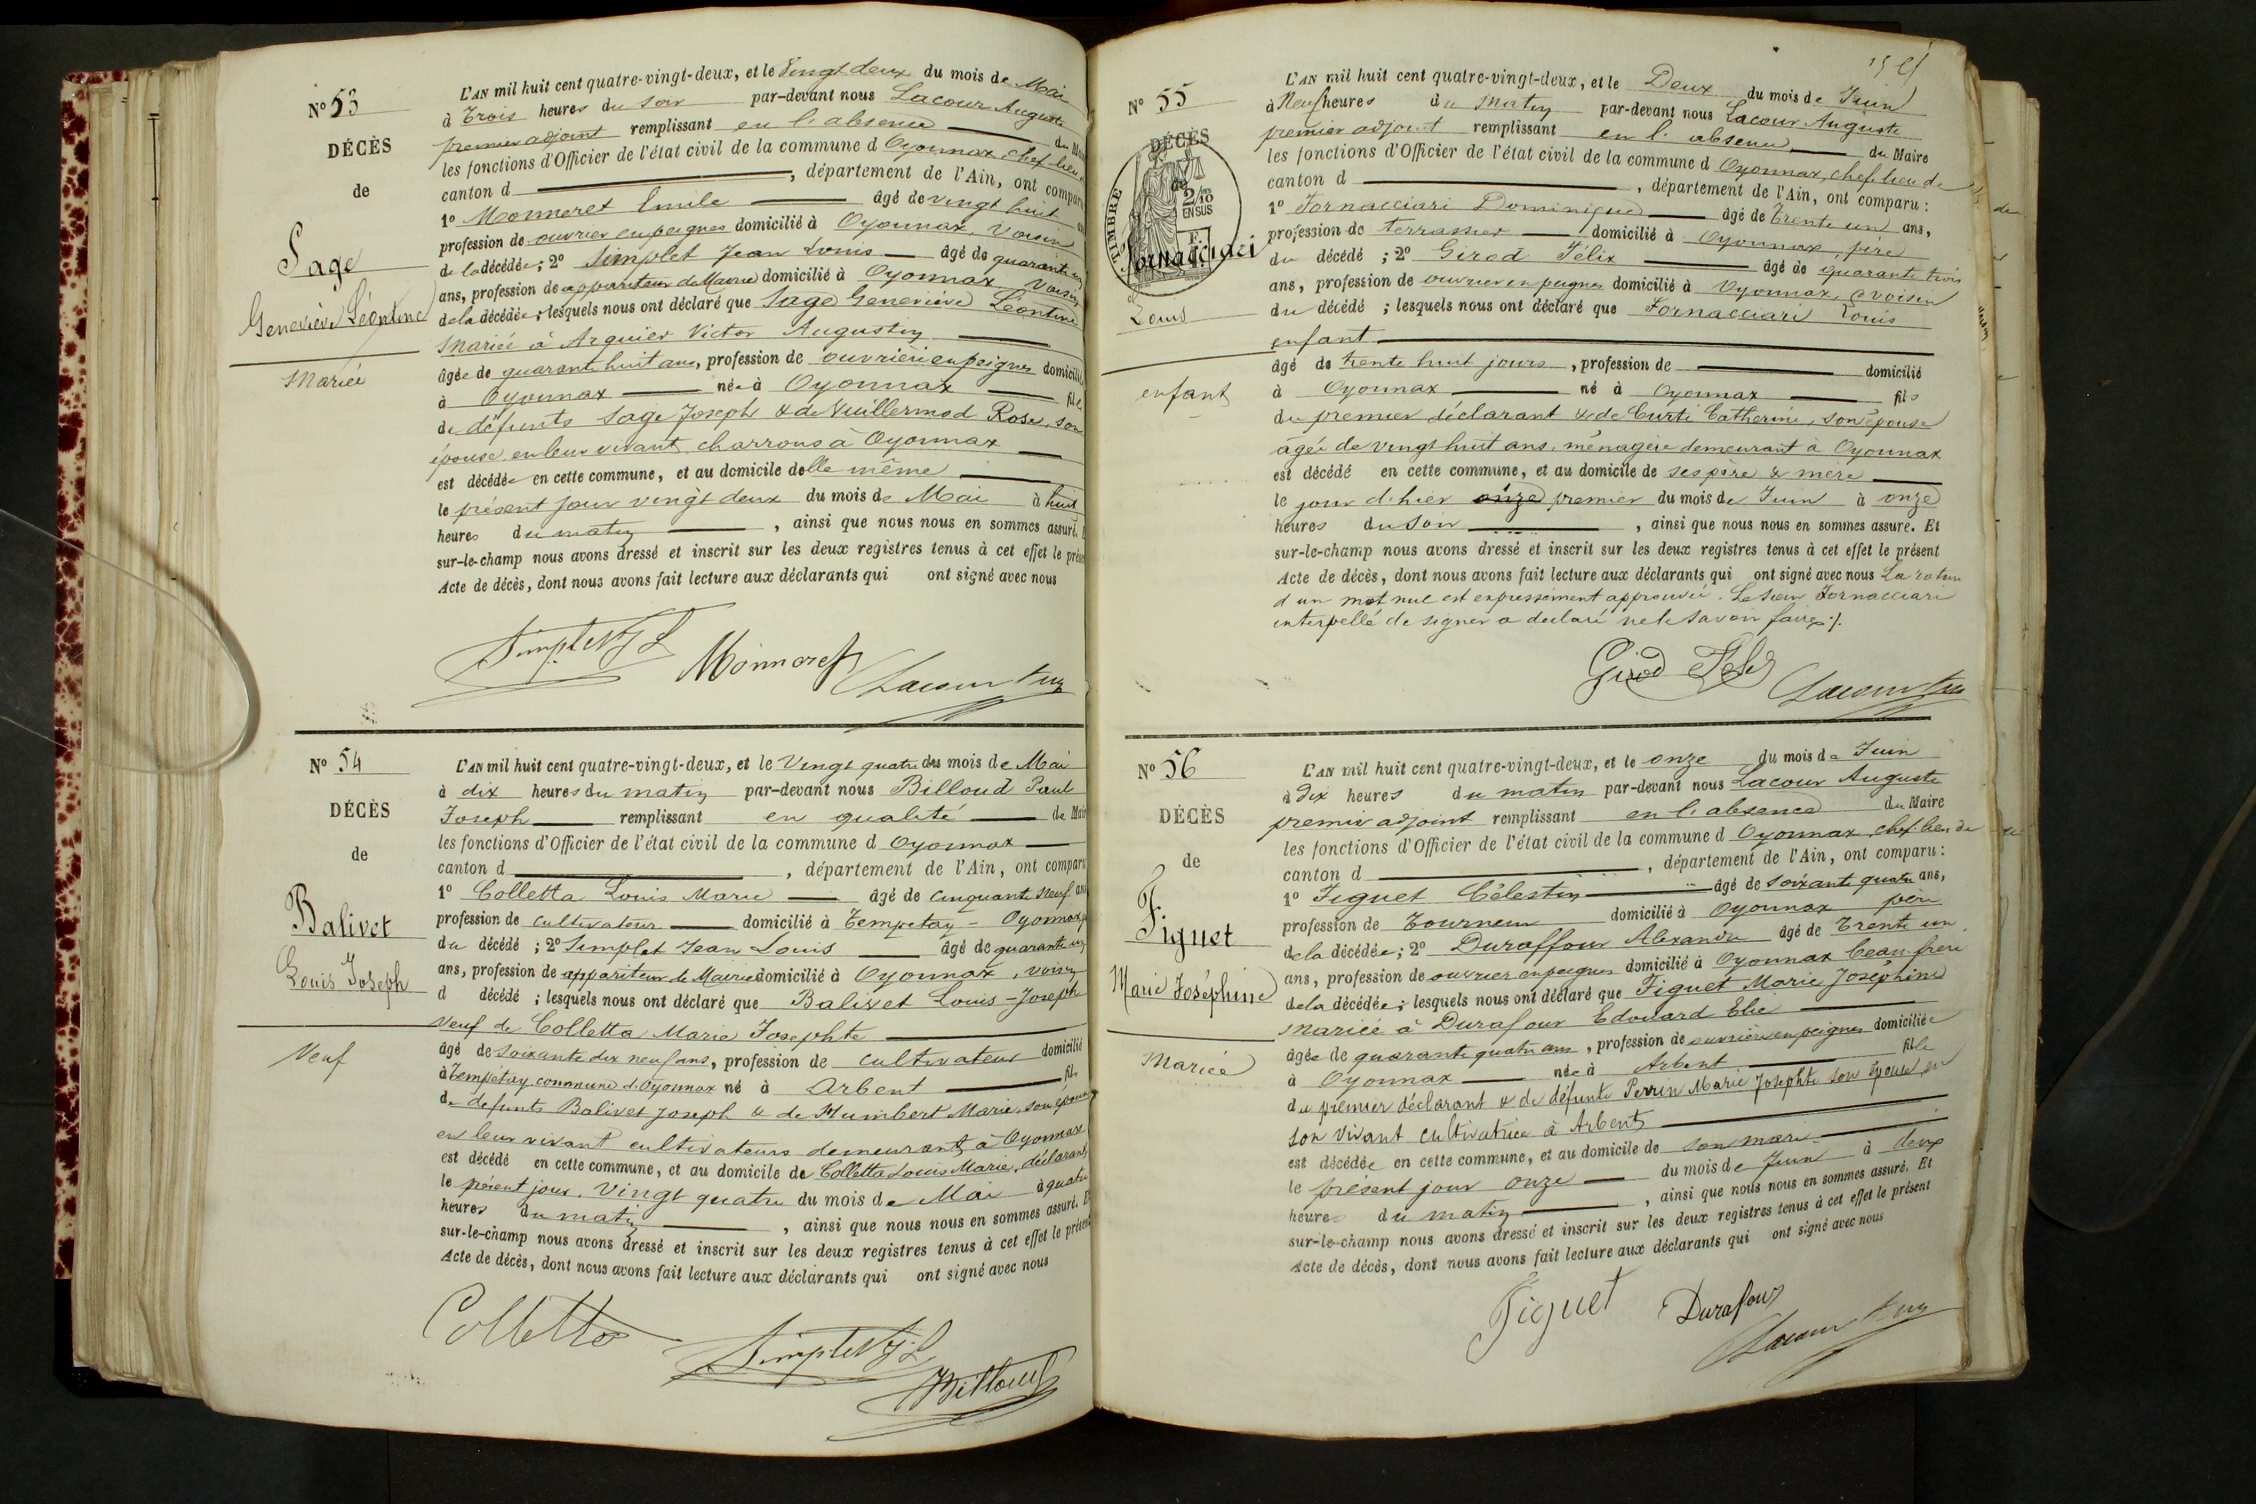 N° 53
DÉCÈS
de
Sage
Geneviève Léontine
Mariée
L'AN mil huit cent quatre-vingt-deux, et le Vingt deux du mois de Mai
à Trois heures du soir par-devant nous Lacour Auguste
premier adjoint remplissant en l'absence du Maire
les fonctions d'Officier de l'état civil de la commune d Oyonnax, chef-lieu de
canton d , département de l'Ain, ont comparu
1° Monneret Emile âgé de vingt huit ans
profession de ouvrier en peignes domicilié à Oyonnax, voisin
de la décédée; 2° Simplet Jean Louis âgé de quarante un
ans, profession de appariteur de Mairie domicilié à Oyonnax, voisin
de la décédée; lesquels nous ont déclaré que Sage Geneviève Léontine
Mariée à Arquier Victor Augustin
âgée de quarante huit ans, profession de ouvrière en peignes domiciliée
à Oyonnax née à Oyonnax fille
de défunts Sage Joseph & de Vuillermod Rose, son
épouse en leur vivant charrons à Oyonnax
est décédée en cette commune, et au domicile delle même
le présent jour vingt deux du mois de Mai à huit
heures du matin , ainsi que nous nous en sommes assuré. Et
sur-le-champ nous avons dressé et inscrit sur les deux registres tenus à cet effet le présent
Acte de décès, dont nous avons fait lecture aux déclarants qui ont signé avec nous
Simplet J L Monneret Lacour Aug
N° 54
DÉCÈS
de
Balivet
Louis Joseph
Veuf
L'AN mil huit cent quatre-vingt-deux, et le Vingt quatre du mois de Mai
à dix heures du matin par-devant nous Billoud Paul
Joseph remplissant en qualité de Maire
les fonctions d'Officier de l'état civil de la commune d Oyonnax
canton d , département de l'Ain, ont comparu
1° Colletta Louis Marie âgé de cinquante neuf ans
profession de cultivateur domicilié à Tempetay - Oyonnax
du décédé; 2° Simplet Jean Louis âgé de quarante un
ans, profession de appariteur de Mairie domicilié à Oyonnax, voisin
d décédé; lesquels nous ont déclaré que Balivet Louis-Joseph
Veuf de Colletta Marie Josephte
âgé de soixante dix neuf ans, profession de cultivateur domicilié
à Tempétay commune d'Oyonnax né à Arbent fils
de défunts Balivet Joseph & de Humbert Marie, son épouse
en leur vivant cultivateurs demeurant à Oyonnax
est décédé en cette commune, et au domicile de Colletta Louis Marie, déclarant
le présent jour, vingt quatre du mois de Mai à quatre
heures du matin , ainsi que nous nous en sommes assuré. Et
sur-le-champ nous avons dressé et inscrit sur les deux registres tenus à cet effet le présent
Acte de décès, dont nous avons fait lecture aux déclarants qui ont signé avec nous
Colletta Simplet J L Billoud
N° 55
DÉCÈS
de
TIMBRE
2/10
EN SUS
Fornacciari
Louis
enfant
L'AN mil huit cent quatre-vingt-deux, et le Deux du mois de Juin
à Neuf heures du matin par-devant nous Lacour Auguste
premier adjoint remplissant en l'absence du Maire
les fonctions d'Officier de l'état civil de la commune d Oyonnax, chef-lieu de
canton d , département de l'Ain, ont comparu:
1° Fornacciari Dominique âgé de Trente un ans,
profession de terrassier domicilié à Oyonnax, père
du décédé; 2° Girod Félix âgé de quarante trois
ans, profession de ouvrier en peignes domicilié à Oyonnax, voisin
du décédé; lesquels nous ont déclaré que Fornacciari Louis
enfant
âgé de trente huit jours, profession de domicilié
à Oyonnax né à Oyonnax fils
du premier déclarant & de Curti Catherine, son épouse
âgée de vingt huit ans, ménagère demeurant à Oyonnax
est décédé en cette commune, et au domicile de ses père & mère
le jour d'hier onze premier du mois de Juin à onze
heures du soir , ainsi que nous nous en sommes assuré. Et
sur-le-champ nous avons dressé et inscrit sur les deux registres tenus à cet effet le présent
Acte de décès, dont nous avons fait lecture aux déclarants qui ont signé avec nous La rature
d'un mot nul est expressément approuvée. Le sieur Fornacciari
interpellé de signer a déclaré ne le savoir faire ./.
Girod Félix Lacour Aug
N° 56
DÉCÈS
de
Figuet
Marie Joséphine
Mariée
L'AN mil huit cent quatre-vingt-deux, et le onze du mois de Juin
à Dix heures du matin par-devant nous Lacour Auguste
premier adjoint remplissant en l'absence du Maire
les fonctions d'Officier de l'état civil de la commune d Oyonnax chef-lieu de
canton d , département de l'Ain, ont comparu:
1° Figuet Célestin âgé de soixante quatre ans,
profession de Tourneur domicilié à Oyonnax père
de la décédée; 2° Duraffour Alexandre âgé de Trente un
ans, profession de ouvrier en peignes domicilié à Oyonnax beau-frère
de la décédée; lesquels nous ont déclaré que Figuet Marie Joséphine
Mariée à Durafour Edouard Elie
âgée de quarante quatre ans, profession de ouvrière en peignes domiciliée
à Oyonnax née à Arbent fille
du premier déclarant & de défunte Perrin Marie Josephte son épouse en
son vivant cultivatrice à Arbent
est décédée en cette commune, et au domicile de son mari
le présent jour onze du mois de Juin à deux
heures du matin , ainsi que nous nous en sommes assuré. Et
sur-le-champ nous avons dressé et inscrit sur les deux registres tenus à cet effet le présent
Acte de décès, dont nous avons fait lecture aux déclarants qui ont signé avec nous
Figuet Durafour Lacour Aug